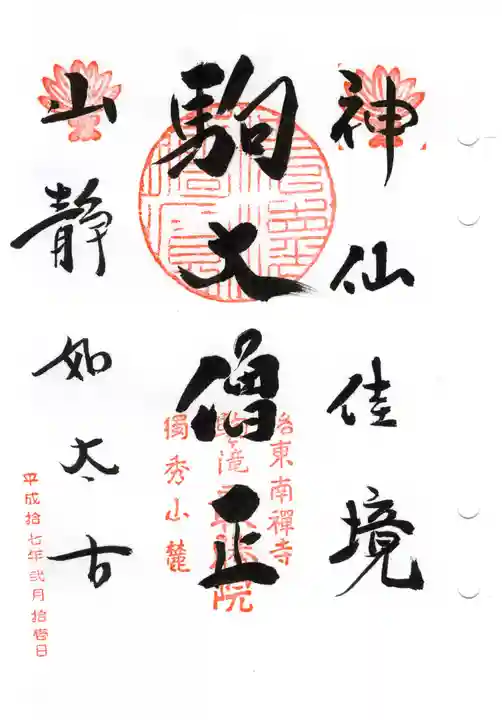 神仙佳境
駒大僧正
山静如太古
洛東南禪寺
獨秀山麓
平成拾七年弐月拾壱日